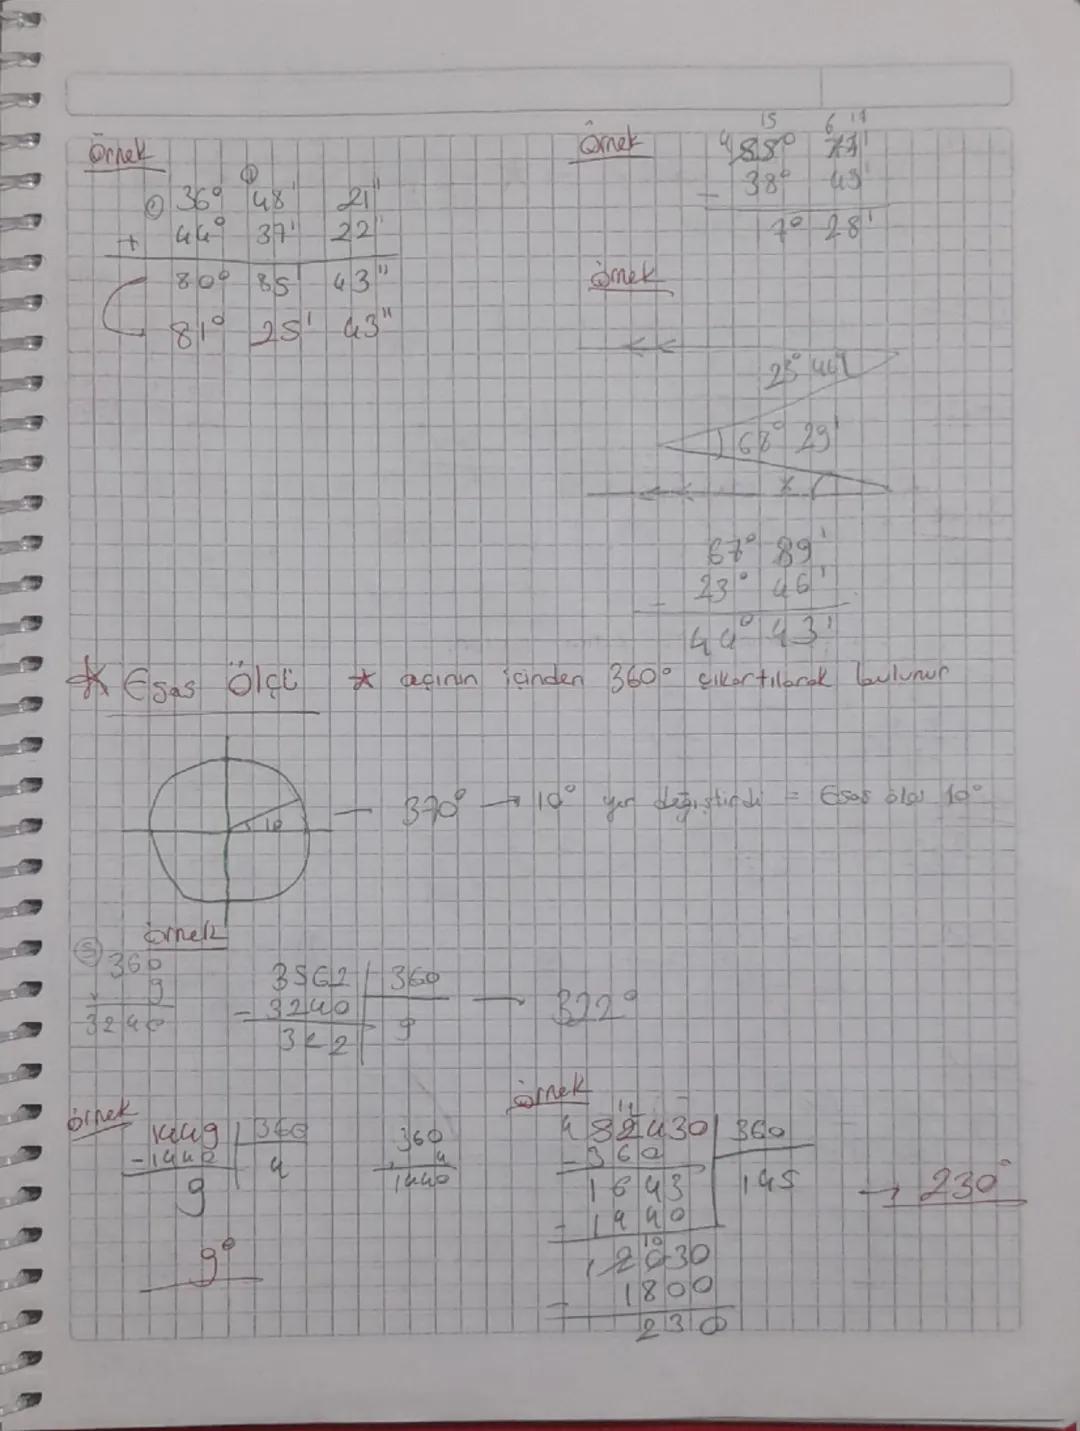 Örnek
36° 48' 21"
+ 44° 37' 22"
80° 85' 43"
81° 25' 43"
Örnek
15 6
- 38° 43'
7° 28'
Örnek
68° 29'
x
67° 89'
- 23° 46'
44° 43'
* Esas Ölçü * açının içinden 360° çıkartılarak bulunur
10 — 370° → 10° yer değiştirdi = Esas ölçü 10°
Örnek
360
x 9
3240
3562 | 360
- 3240 9
322
— 322°
Örnek
1449 | 360
- 1440 4
9
9°
360
x 4
1440
Örnek
52430 | 360
- 360 145
1643
- 1440
2030
- 1800
230
→ 230°